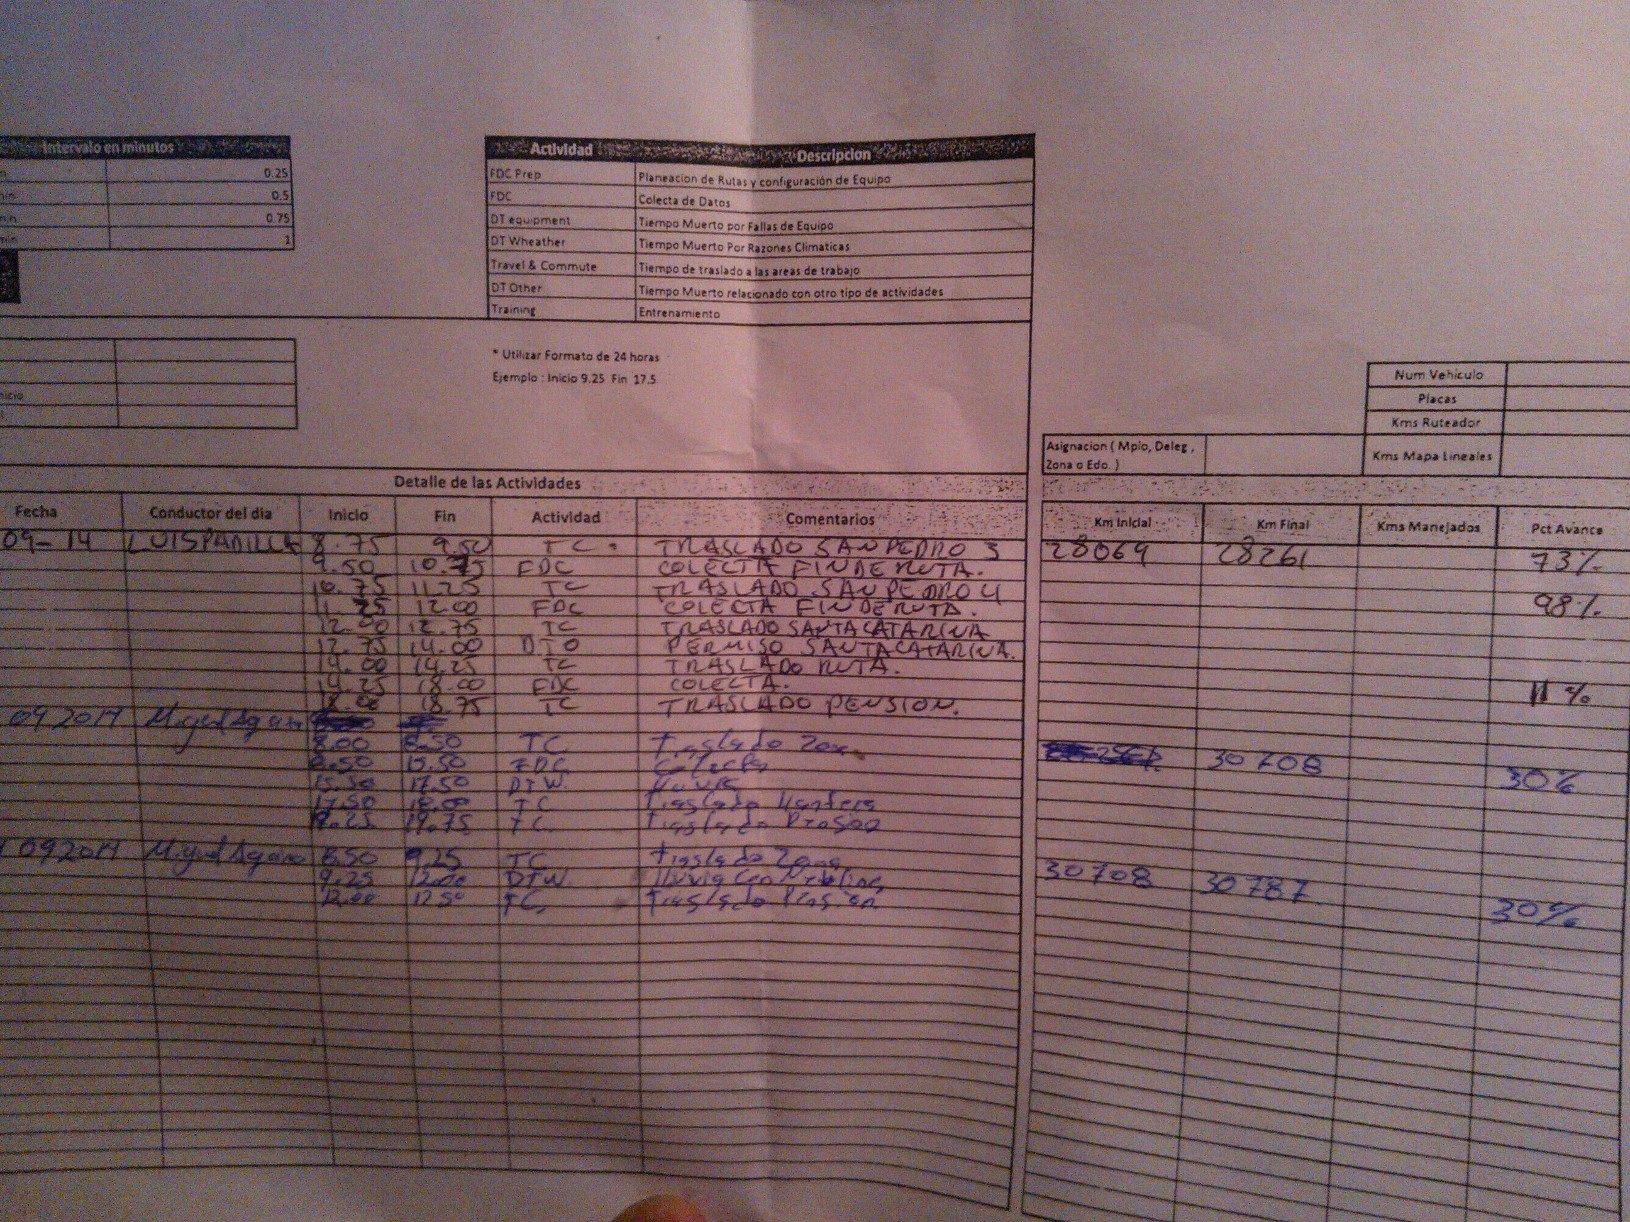 Intervalo en minutos
0.25
0.5
0.75
1
Actividad Descripcion
FDC Prep Planeacion de Rutas y configuración de Equipo
FDC Colecta de Datos
DT equipment Tiempo Muerto por Fallas de Equipo
DT Wheather Tiempo Muerto Por Razones Climaticas
Travel & Commute Tiempo de traslado a las areas de trabajo
DT Other Tiempo Muerto relacionado con otro tipo de actividades
Training Entrenamiento
* Utilizar Formato de 24 horas
Ejemplo : Inicio 9.25 Fin 17.5
Num Vehiculo
Placas
Kms Ruteador
Asignacion ( Mpio, Deleg ,
Zona o Edo. )
Kms Mapa Lineales
Detalle de las Actividades
Fecha Conductor del dia Inicio Fin Actividad Comentarios Km Inicial Km Final Kms Manejados Pct Avance
09-14 LUIS PADILLA 8.75 9.50 TC. TRASLADO SAN PEDRO 3 28069 28261 73%
9.50 10.75 FDC COLECTA FIN DE RUTA.
10.75 11.25 TC TRASLADO SAN PEDRO 4
11.25 12.00 FDC COLECTA FIN DE RUTA. 98%
12.00 12.75 TC TRASLADO SANTA CATARINA
12.75 14.00 DTO PERMISO SANTA CATARINA.
14.00 14.25 TC TRASLADO RUTA.
14.25 18.00 FDC COLECTA.
18.00 18.75 TC TRASLADO PENSION. 11%
09 2014 Miguel
8.00 8.50 TC Traslado 30708
8.50 15.50 FDC Colecta 30%
15.50 17.50 DTW. lluvia
17.50 18.00 TC Traslado
19.25 19.75 TC. Traslado Pension
09 2014 Miguel 8.50 9.25 TC Traslado Zona
9.25 12.00 DTW. lluvia Con Neblina 30708 30787
12.00 12.50 TC, Traslado Pension 30%